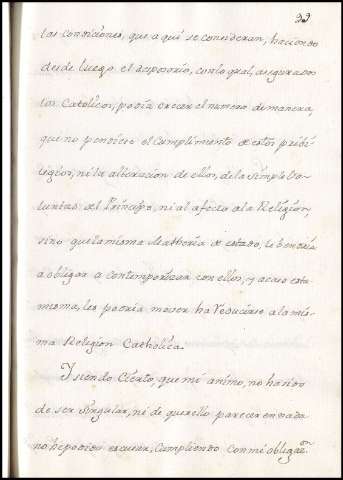 23
las condiciones, que aqui se consideran, haciendo
desde luego el desposorio, con lo qual, asegurados
los Catolicos, podia crecer el numero de manera,
que no pendiese el Cumplimiento de estos privi-
legios, ni la alteracion de ellos, de la simple Vo-
luntad del Principe, ni al afecto a la Religion,
sino que la misma Matheria de estado, le tendria
a obligar a contemporizar con ellos, y acaso esta
misma, les podria mover ha reducirse a la mis-
ma Religion Catholica.
Y siendo Cierto, que mi animo, no ha sido
de ser singular, ni de querello parecer en nada
no he podido escusar, Cumpliendo con mi obligaon